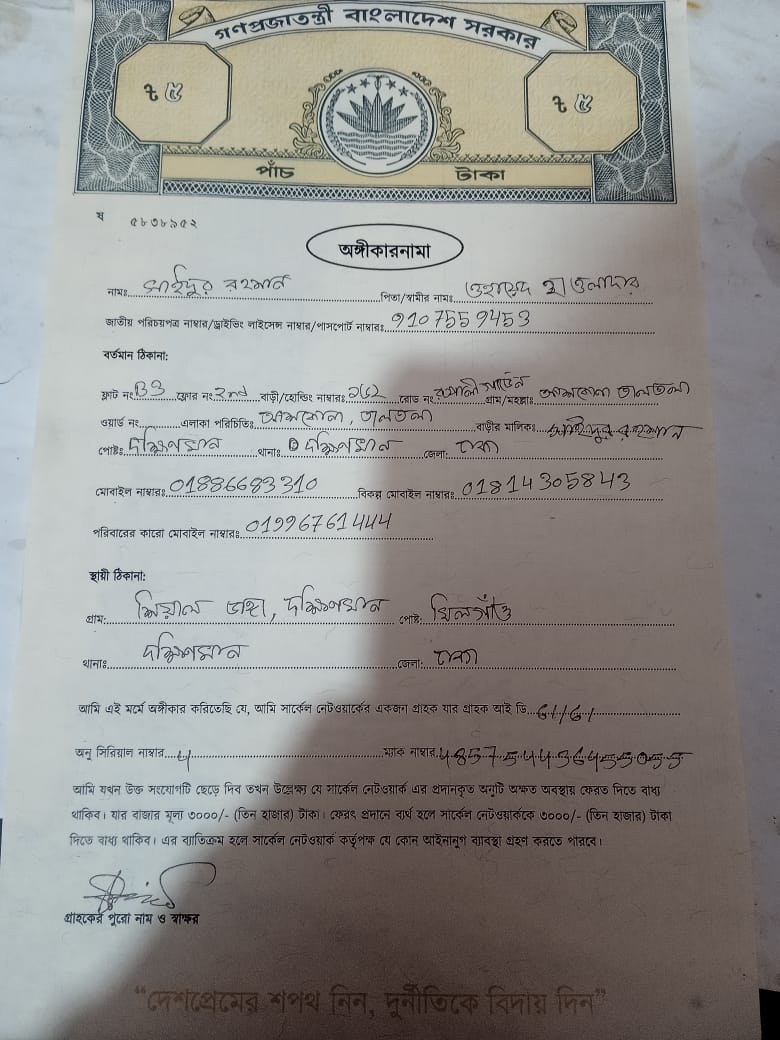 গণপ্রজাতন্ত্রী বাংলাদেশ সরকার
৳ ৫ ৳ ৫
পাঁচ টাকা
ষ ৫৮৩৮৯৫২
অঙ্গীকারনামা
নামঃ সাইদুর রহমান পিতা/স্বামীর নামঃ ওয়ায়েদ হাওলাদার
জাতীয় পরিচয়পত্র নাম্বার/ড্রাইভিং লাইসেন্স নাম্বার/পাসপোর্ট নাম্বারঃ 9107559453
বর্তমান ঠিকানা:
ফ্লাট নং B3 ফ্লোর নং 2nd বাড়ী/হোল্ডিং নাম্বারঃ ১৬২ রোড নং রূপালী গার্ডেন গ্রাম/মহল্লাঃ আশকোনা তালতলা
ওয়ার্ড নং এলাকা পরিচিতিঃ আশকোনা, তালতলা বাড়ীর মালিকঃ সাইদুর রহমান
পোষ্টঃ দক্ষিণখান থানাঃ দক্ষিণখান জেলা: ঢাকা
মোবাইল নাম্বারঃ 01886683310 বিকল্প মোবাইল নাম্বারঃ 01814305843
পরিবারের কারো মোবাইল নাম্বারঃ 01996761444
স্থায়ী ঠিকানা:
গ্রাম: শিয়াল ডাঙ্গা, দক্ষিণখান পোষ্ট: খিলগাঁও
থানাঃ দক্ষিণখান জেলা: ঢাকা
আমি এই মর্মে অঙ্গীকার করিতেছি যে, আমি সার্কেল নেটওয়ার্কের একজন গ্রাহক যার গ্রাহক আই ডি
অনু সিরিয়াল নাম্বার 4 ম্যাক নাম্বার
আমি যখন উক্ত সংযোগটি ছেড়ে দিব তখন উল্লেক্ষ্য যে সার্কেল নেটওয়ার্ক এর প্রদানকৃত অনুটি অক্ষত অবস্থায় ফেরত দিতে বাধ্য
থাকিব। যার বাজার মূল্য ৩০০০/- (তিন হাজার) টাকা। ফেরৎ প্রদানে ব্যর্থ হলে সার্কেল নেটওয়ার্ককে ৩০০০/- (তিন হাজার) টাকা
দিতে বাধ্য থাকিব। এর ব্যতিক্রম হলে সার্কেল নেটওয়ার্ক কর্তৃপক্ষ যে কোন আইনানুগ ব্যাবস্থা গ্রহণ করতে পারবে।
গ্রাহকের পুরো নাম ও স্বাক্ষর
“দেশপ্রেমের শপথ নিন, দুর্নীতিকে বিদায় দিন”